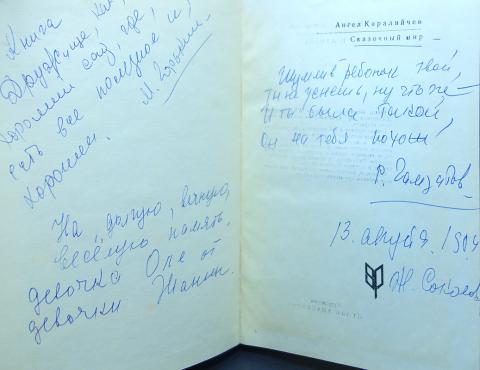 Книга
Дружище, как
хороший сад, где
есть все полезное и
хорошее.
М. Горький
На долгую, вечную,
весёлую память.
девочке Оле от
девочки Жанны.
Ангел Каралийчев
Сказочный мир
Шумлив ребенок твой,
ты не уснешь, ну что же
И ты была такой,
Он на тебя похож!
Р. Гамзатов
13.
Ж.